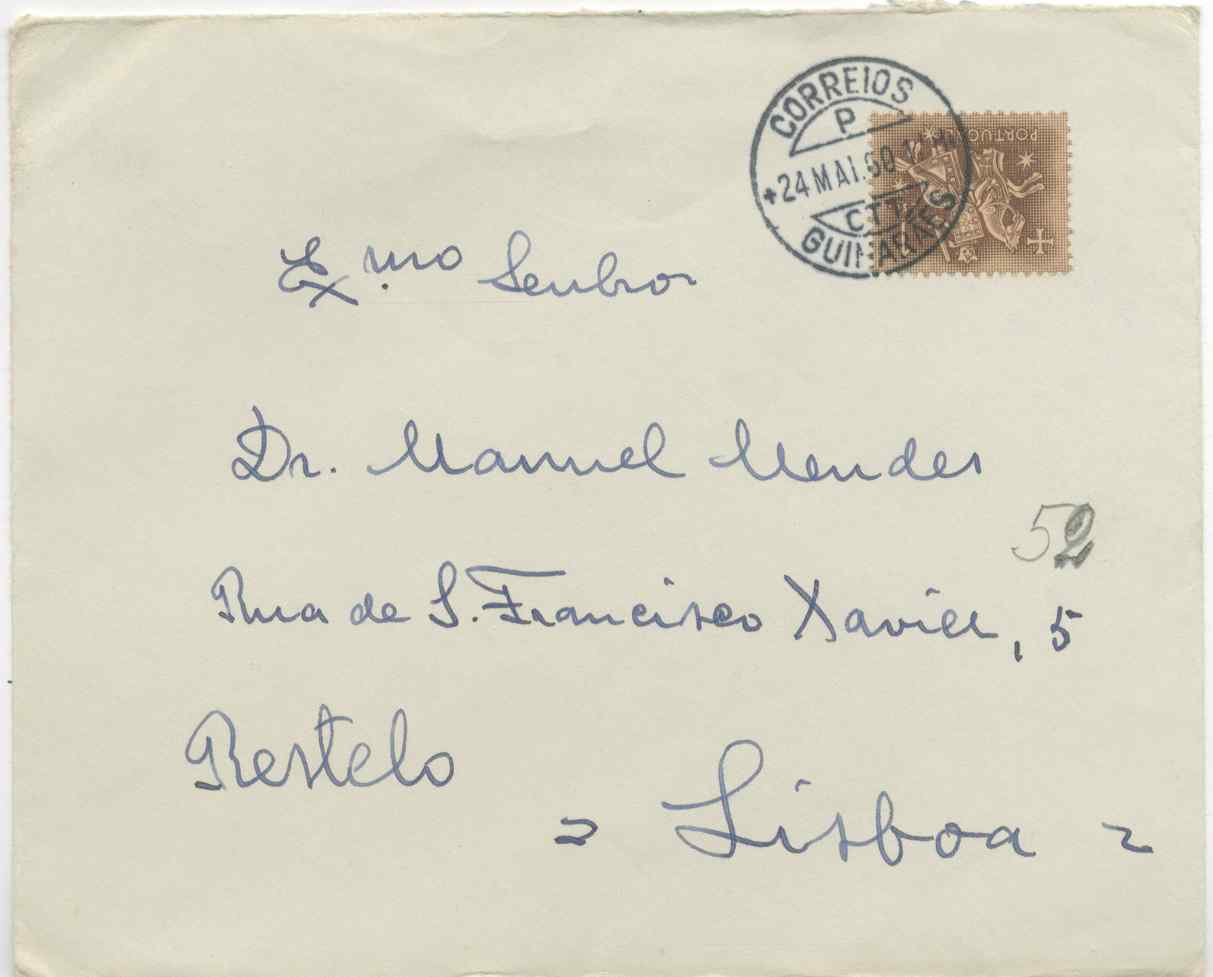 CORREIOS
P
+24 MAI.60
CTT
GUIMARÃES
PORTUGAL
Ex.mo Senhor
Dr. Manuel Mendes
52
Rua de S. Francisco Xavier, 5
Restelo
Lisboa